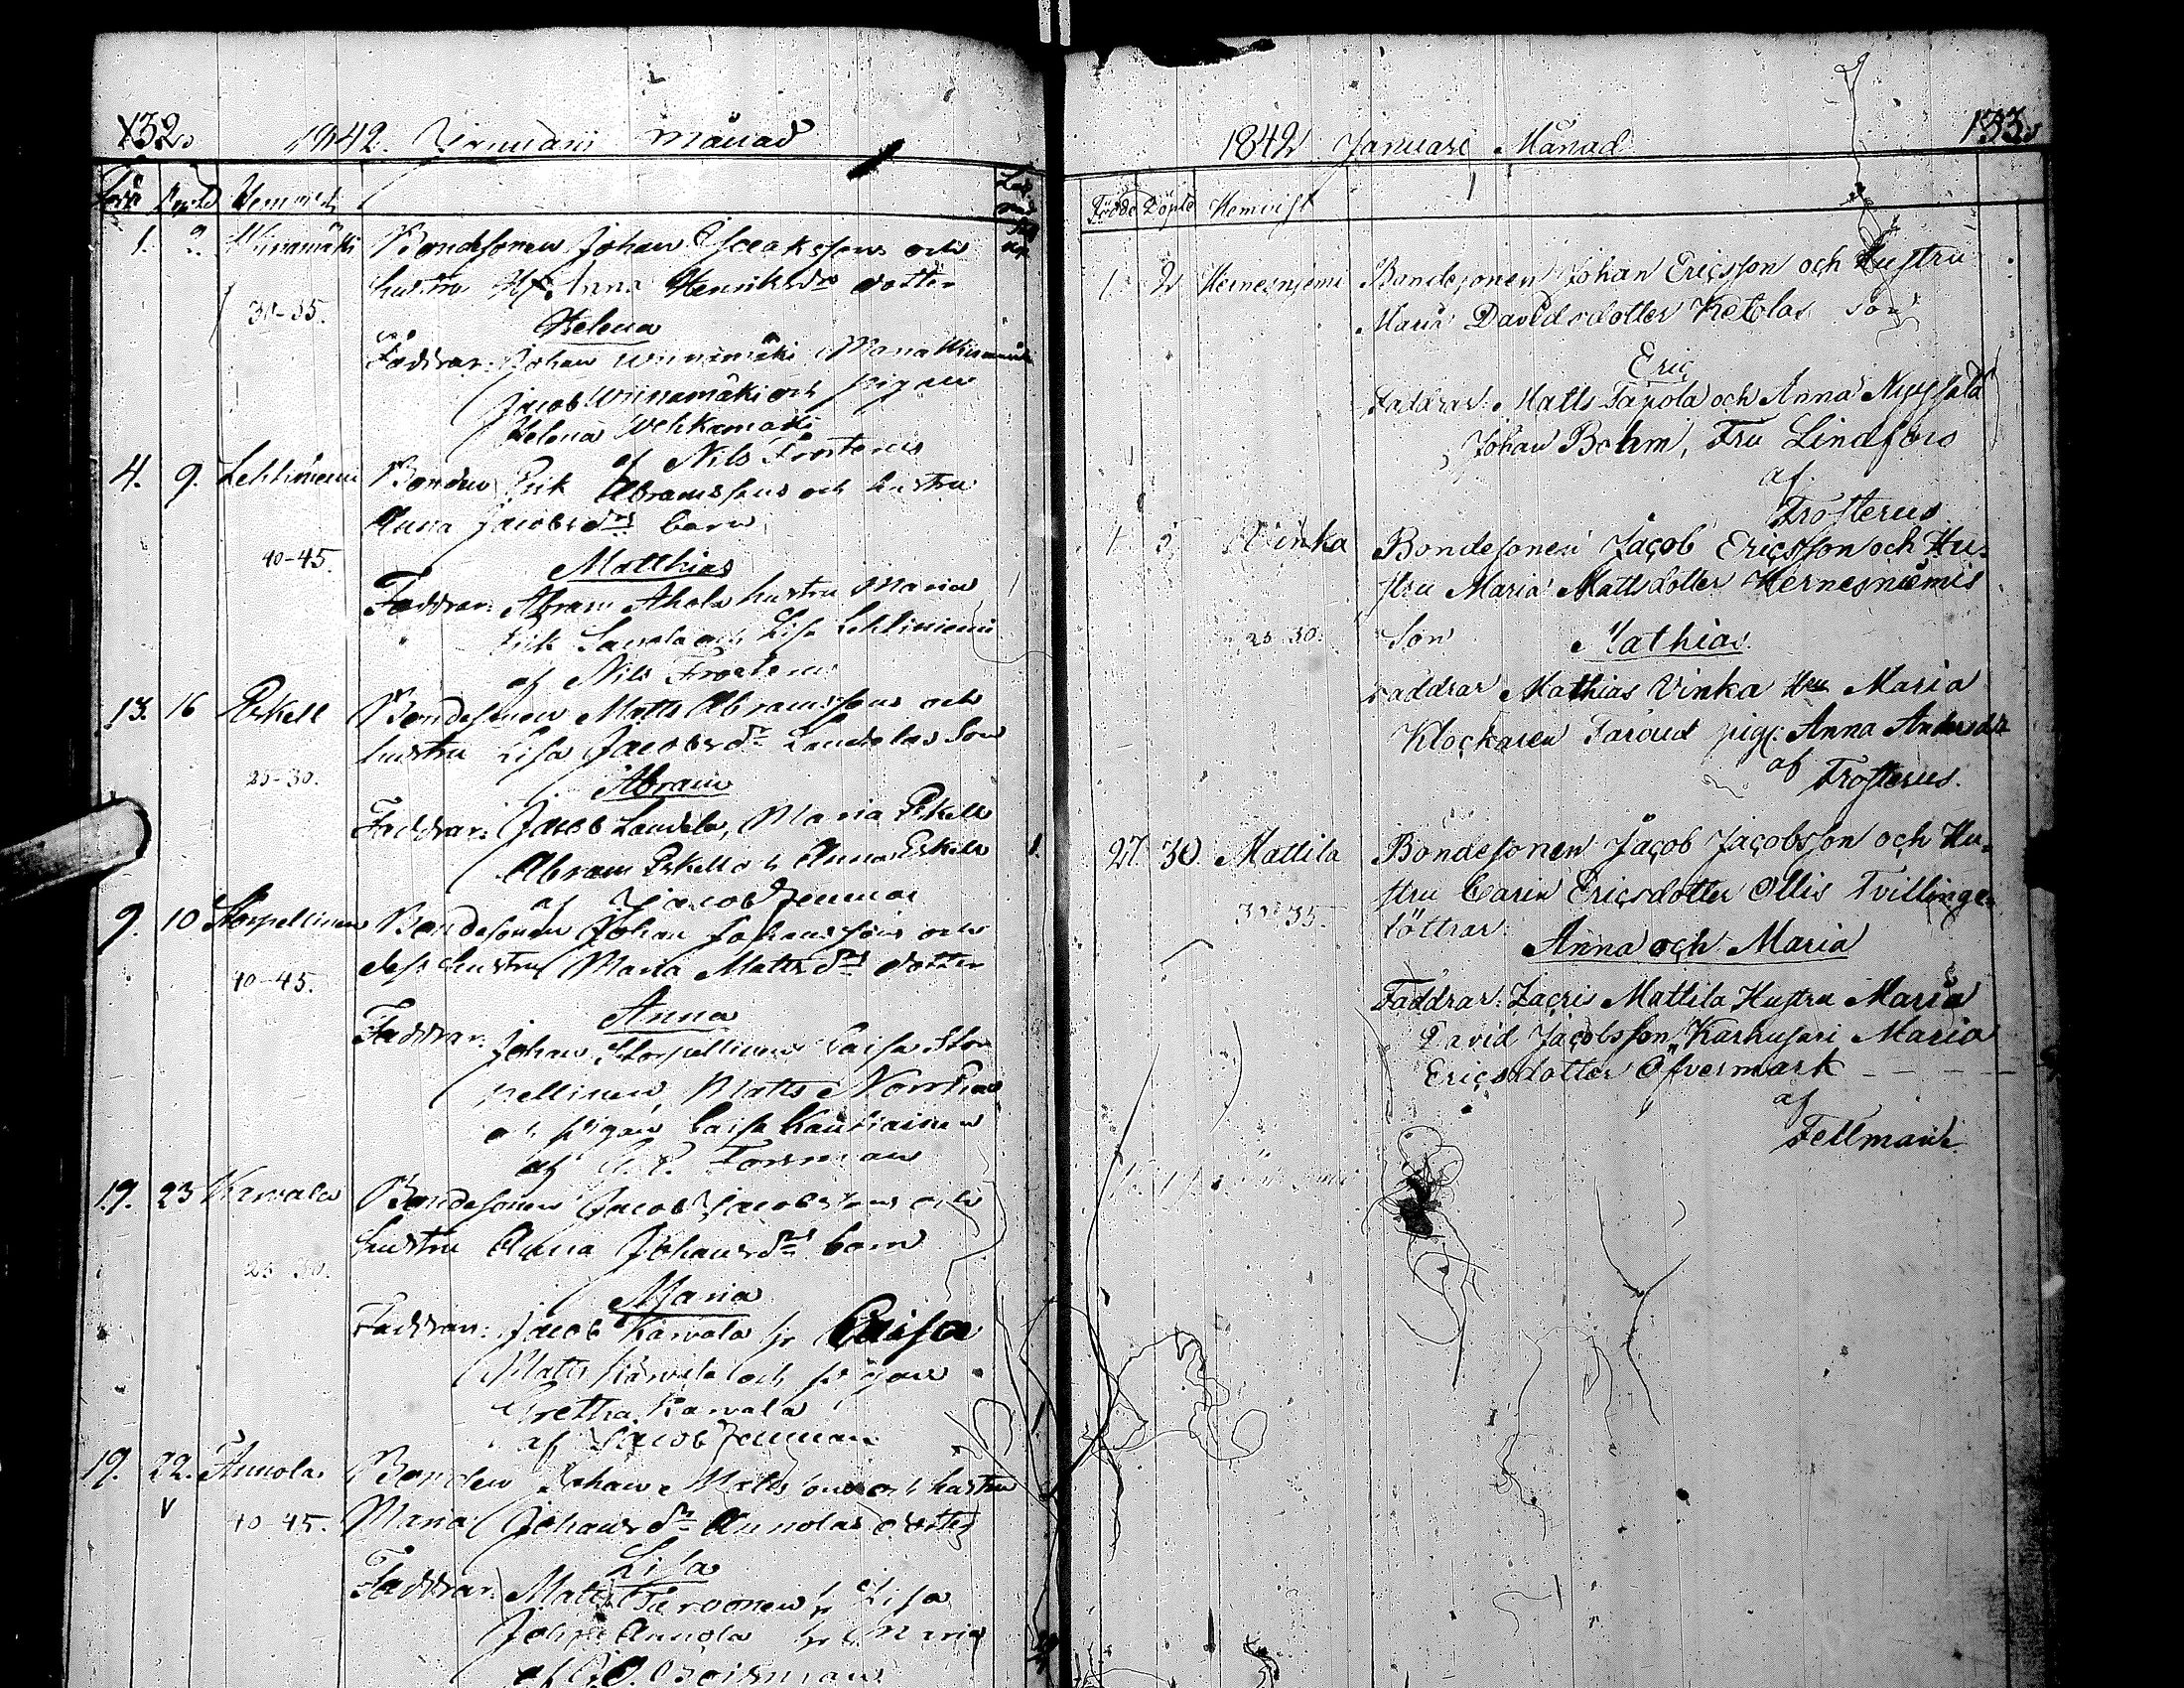 132.
1842. Januari månad
Född Döpld Hemvist
1. 2. Wiinamäki Bondesonen Johan Isaakssons och
hustru Anna Henriksdrs dotter
30-35. Helena
Faddrar: Johan Wiinamäki, Maria Wiinamäki
Jacob Wiinamäki och pigan
Helena Wehkamäki
af Nils Frosterus
4. 9. Lehtiniemi Bonden Erik Abramssons och hustru
Anna Jacobsdrs barn
40-45. Matthias
Faddrar: Abram Ahola hustru Maria
Erik och Lisa Lehtiniemi
af Nils Frosterus
13. 16 Eskell Bondesonen Matts Abramssons och
hustru Lisa Jacobsdr Laudalas Son
25-30. Abram
Faddrar: Jacob Laudala, Maria Eskell
Abram Eskell och Anna Eskell
af Jacob
9. 10 Storpellinen Bondesonen Johan Johanssons och
dess hustru Maria Mattsdrs dotter
40-45. Anna
Faddrar: Johan Storpellinen Caisa Stor
pellinen, Matts
och pigan Caisa Kautiainen
af Forsman
19. 23 Karvala Bondesonen Jacob Jacobssons och
hustru Anna Johansdrs barn
25-30. Maria
Faddrar: Jacob Karvala hr Caisa
Matts Karvala och pigan
Gretha Karvala
af Jacob
19. 22. Annola Bonden Johan Matssons och hustru
V 40-45. Maria Johansdr Annolas dotter
Lisa
Faddrar: Matts hr Lisa
Annola hr Maria
af
1842 Januari Månad 133.
Födde Döpte Hemvist
1. 2 Hernesniemi Bondesonen Johan Ericsson och Hustru
Maria Davidsdotter Ketolas Son
Eric
Faddrar: Matts Tapola och Anna
Johan Bohm, Fru Lindfors
af
Frosterus
4. 5 Vinka Bondesonen Jacob Ericsson och Hu-
stru Maria Mattsdotter Hernesniemis
25-30. Son Mathias.
Faddrar Mathias Vinka Hru Maria
Klockaren pig: Anna Andersdr
af Frosterus.
27. 30. Mattila Bondesonen Jacob Jacobsson och Hu-
stru Carin Ericsdotter Ollis Tvillinge-
30-35. döttrar.
Anna och Maria
Faddrar: Zacris Mattila Hustru Maria
David Jacobsson, Karhusari Maria
Ericsdotter Öfvermark
af
Fellman.